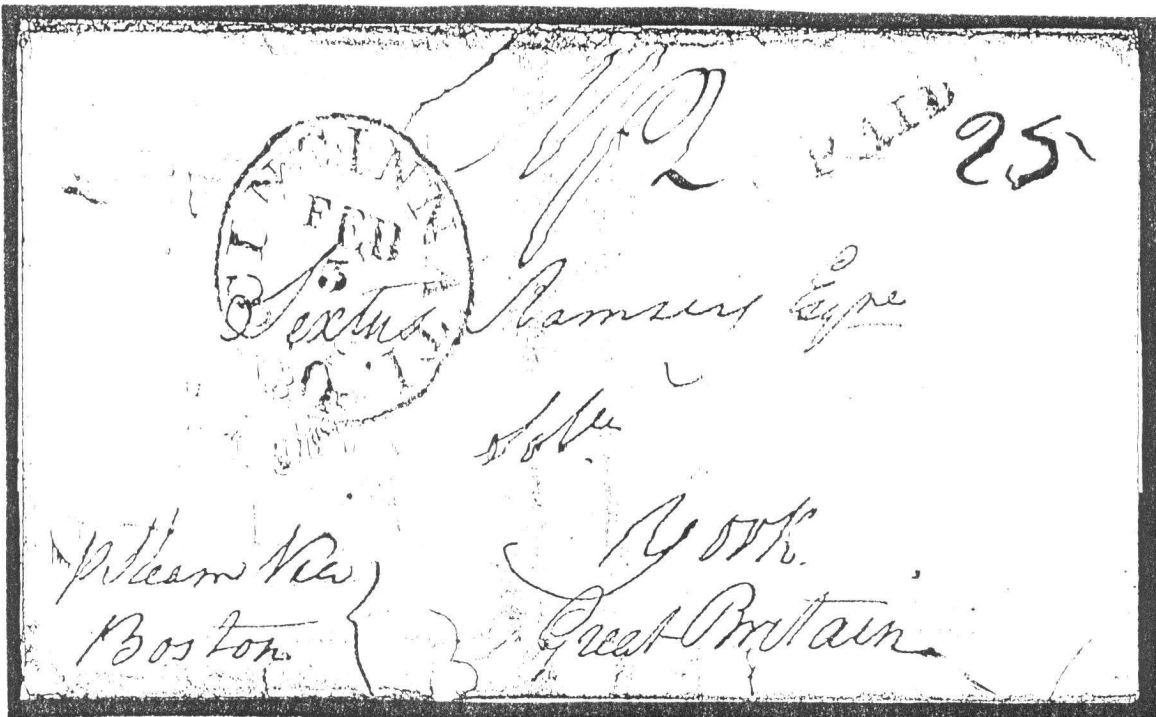 1/2 PAID 25
CINCINNATI
FEB
Sextus Ramsey Esqre
York.
Great Britain.
p Steam Via
Boston